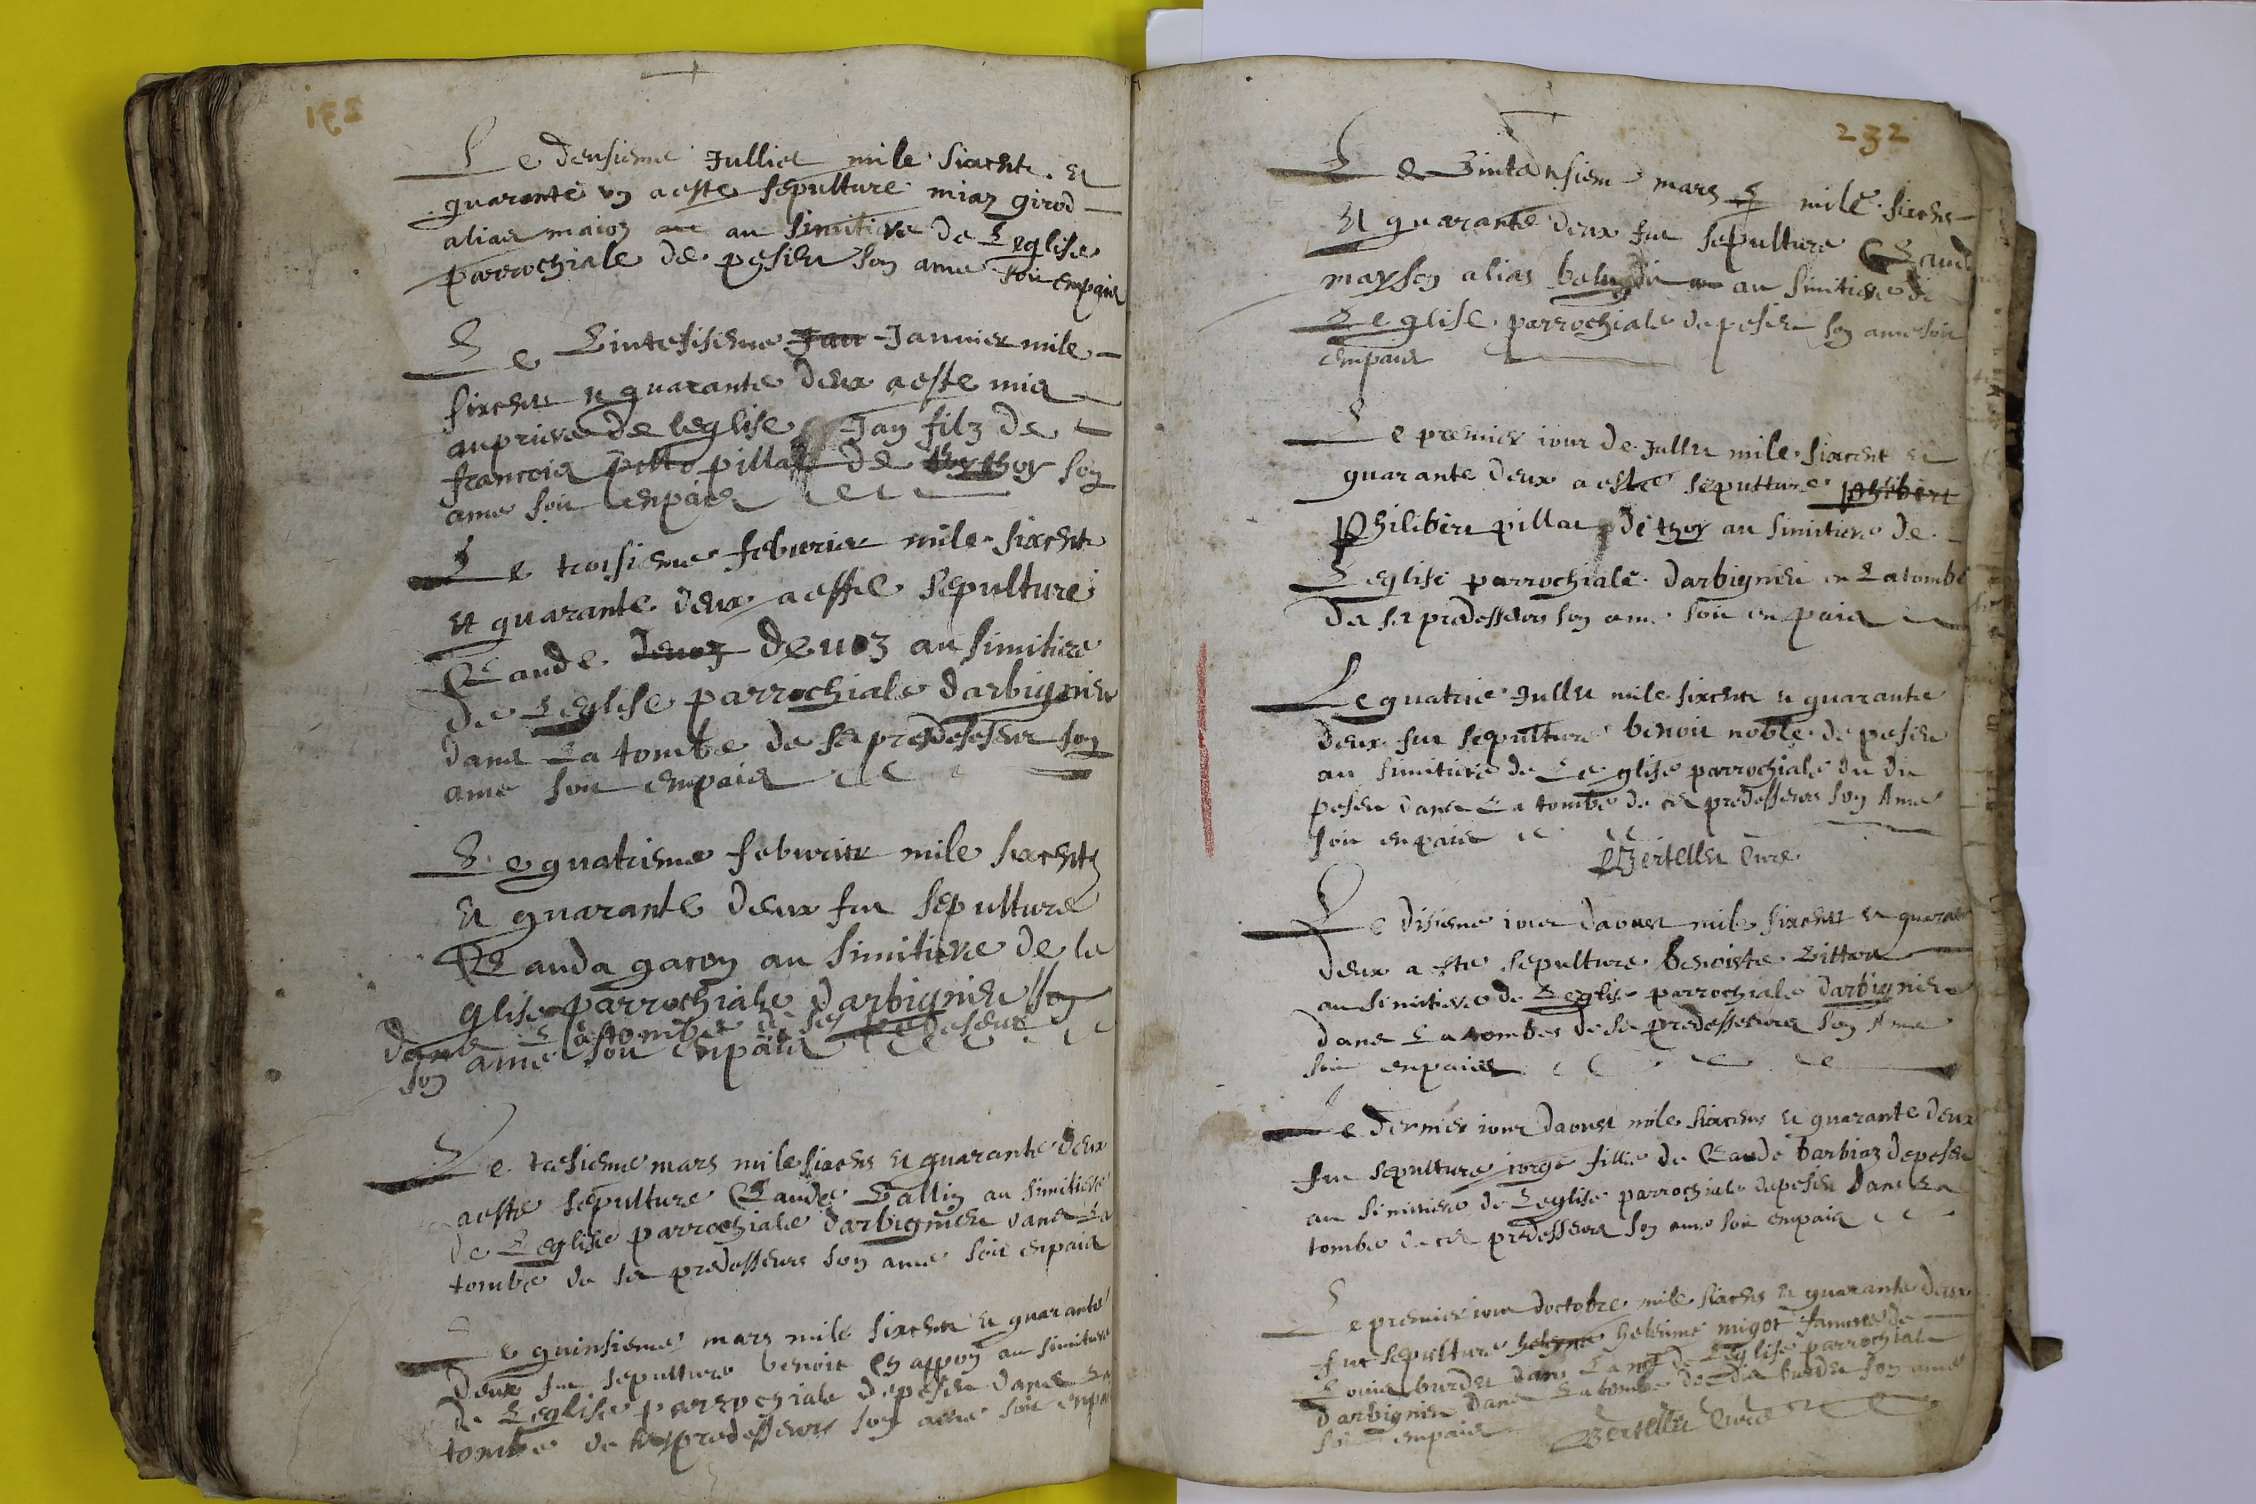 Le deusieme Jullier mile sixcent et
quarante un aeste sepulture miaz girod
alias maion au simitiere de Leglise
parrochiale de pesieu son ame soit enpais
Le Jan Januier mile
sixcent et quarante deux aeste mis
de leglise Jan filz de
francois pillat de thoy son
ame soit enpais
Le troisieme feburier mile sixcent
et quarante deux aeste sepulture
Claude deuoz au simitiere
de Leglise parrochiale darbignieu
dans La tombe de ses predeseseur son
ame soit enpais
Le quatrieme feburier mile sixcent
et quarante deux fut sepulture
Clauda garon au simitiere de le
glise parrochiale darbignieu son
dans La tombe de ses predeseur
son ame soit enpais
Le tresieme mars mile sixcens et quarante deux
aeste sepulture Claude Gallin au simitiere
de Leglise parrochiale darbignieu dans La
tombe de ses predesseurs son ame soit enpais
Le quinsieme mars mile sixcent et quarante
deux fut sepulture benoit au simitiere
de Leglise parrochiale de pesieu dans La
tombe de ses predesseurs son ame soit enpais
232
Le mars mile sixcens
et quarante deux fut sepulture Claude
mayson alias au simitiere de
Leglise parrochiale de pesieu son ame soit
enpais
Le premier iour de Jullet mile sixcent et
quarante deux aeste sepulture
Philibert pillat de thoy au simitiere de
Leglise parrochiale darbignieu en La tombe
de ses predesseurs son ame soit en pais
Le quatrie Jullet mile sixcent et quarante
deux fut sepulture benoit noble de pesieu
au simitiere de Leglise parrochiale du dit
pesieu dans La tombe de ces predesseurs son Ame
soit enpais
Bertellet Cure
Le disieme iour daoust mile sixcent et quarante
deux a este sepulture benoiste
au simitiere de Leglise parrochiale darbignieu
dans La tombes de ses predesseurs son Ame
soit enpais
Le dernier iour daoust mile sixcens et quarante deux
fut sepulture iorge fillie de Claude barbiaz de pesieu
au simitiere de Leglise parrochiale de pesieu dans La
tombe de ces predesseurs son ame soit enpais
Le premier iour doctobre mile sixcens et quarante deux
fut sepulture migot famme de
Louis burdet dans de Leglise parrochiale
darbignieu dans La tombe dudit burdet son ame
soit enpais Bertellet Cure